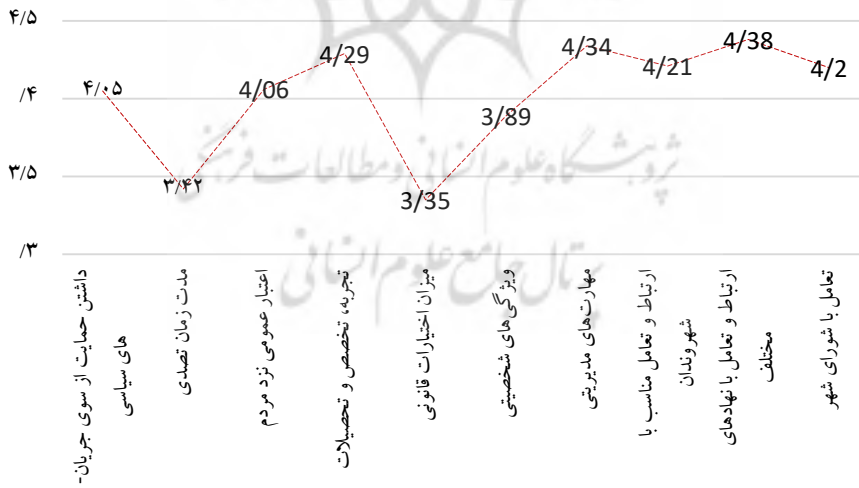 ۴/۵
/۴
۳/۵
/۳
۴/۰۵
۳/۴۲
4/06
4/29
3/35
3/89
4/34
4/21
4/38
4/2
پژوهشگاه علوم انسانی و مطالعات فرهنگی
پرتال جامع علوم انسانی
داشتن حمایت از سوی جریان-
های سیاسی
مدت زمان تصدی
اعتبار عمومی نزد مردم
تجربه، تخصص و تحصیلات
میزان اختیارات قانونی
ویژگی‌های شخصیتی
مهارت‌های مدیریتی
ارتباط و تعامل مناسب با
شهروندان
ارتباط و تعامل با نهادهای
مختلف
تعامل با شورای شهر